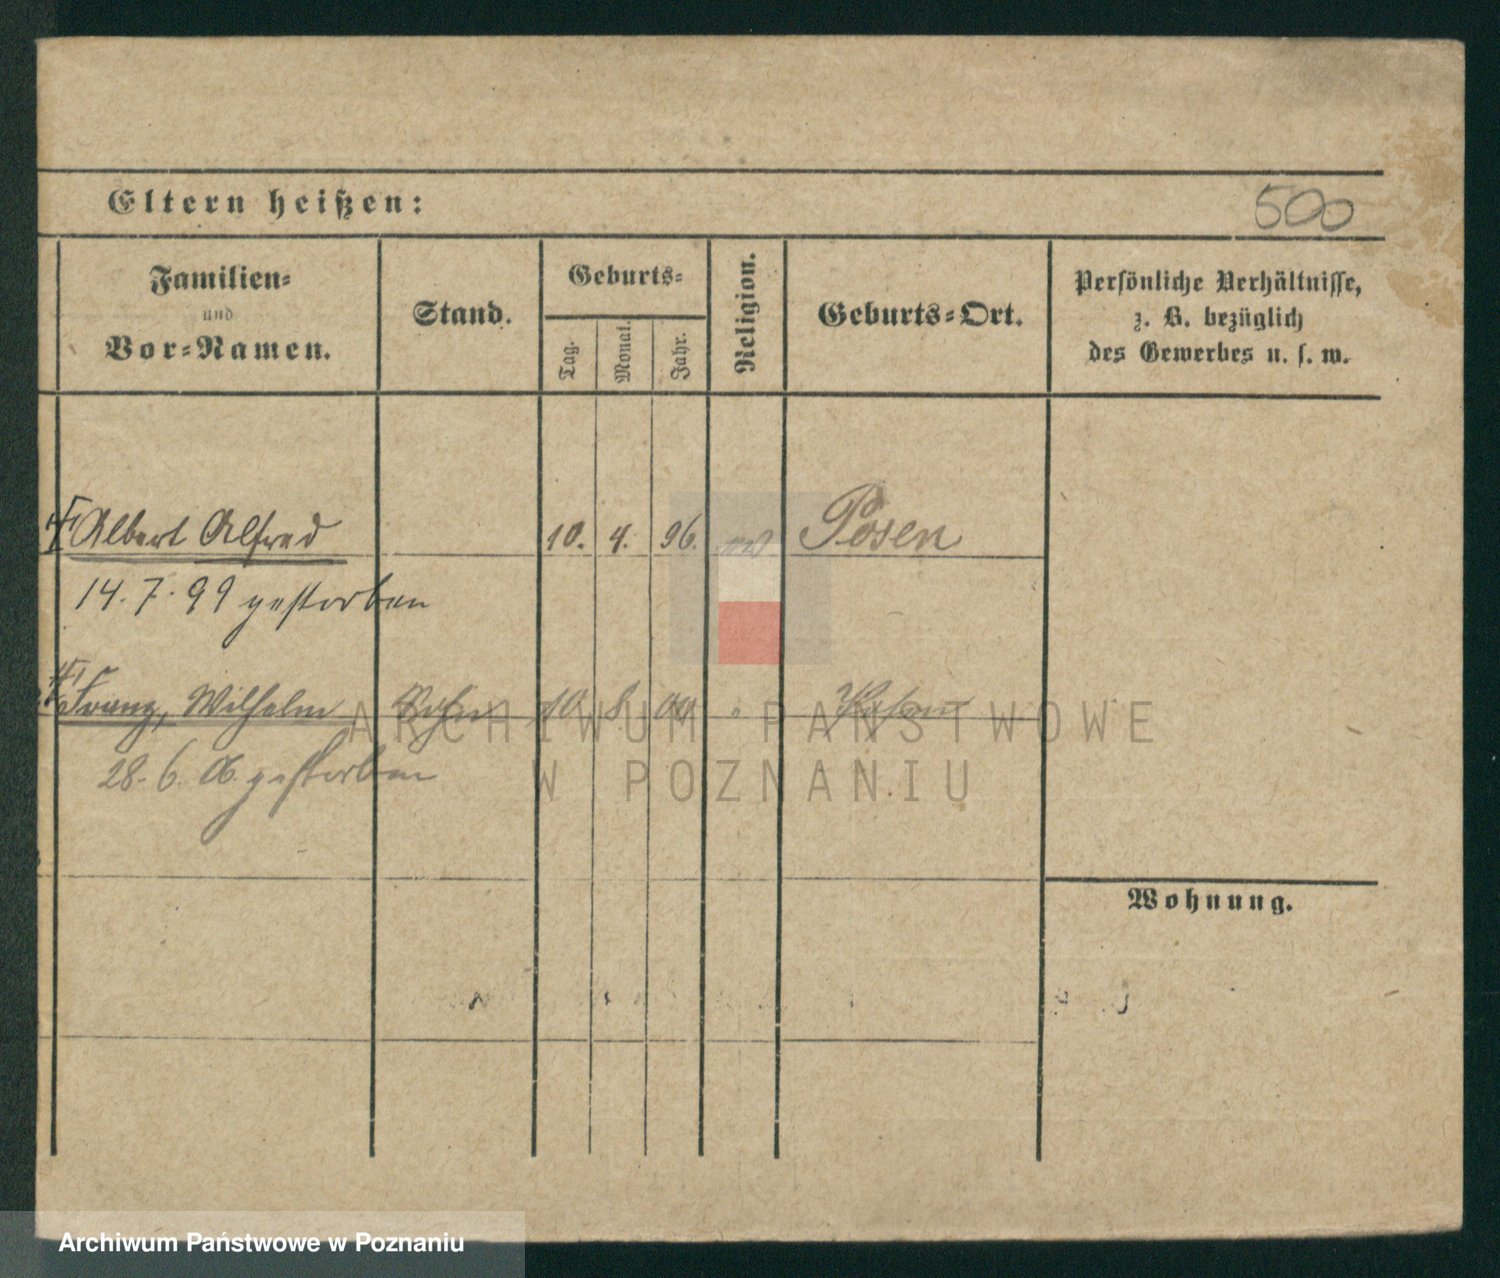 Eltern heißen:
500
Familien-
und
Vor-Namen.
Stand.
Geburts-
Tag.
Monat.
Jahr.
Religion.
Geburts-Ort.
Persönliche Verhältnisse,
z. B. bezüglich
des Gewerbes u. s. w.
Albert Alfred 10. 4. 96. Posen
14. 7. 99 gestorben
Franz, Wilhelm Sohn 10. 8. 00 Posen
28. 6. 06. gestorben
ARCHIWUM PAŃSTWOWE
W POZNANIU
Wohnung.
Archiwum Państwowe w Poznaniu